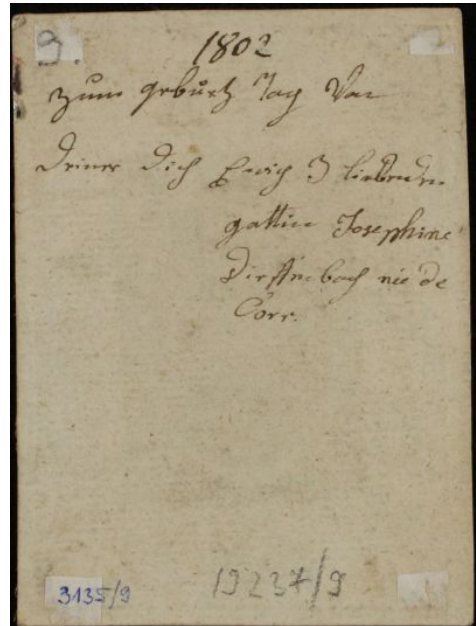 9.
1802
zum geburtz Tag Von
Deiner Dich Ewig liebenden
gattin Josephine
née de
Corr.
3135/9
19237/9